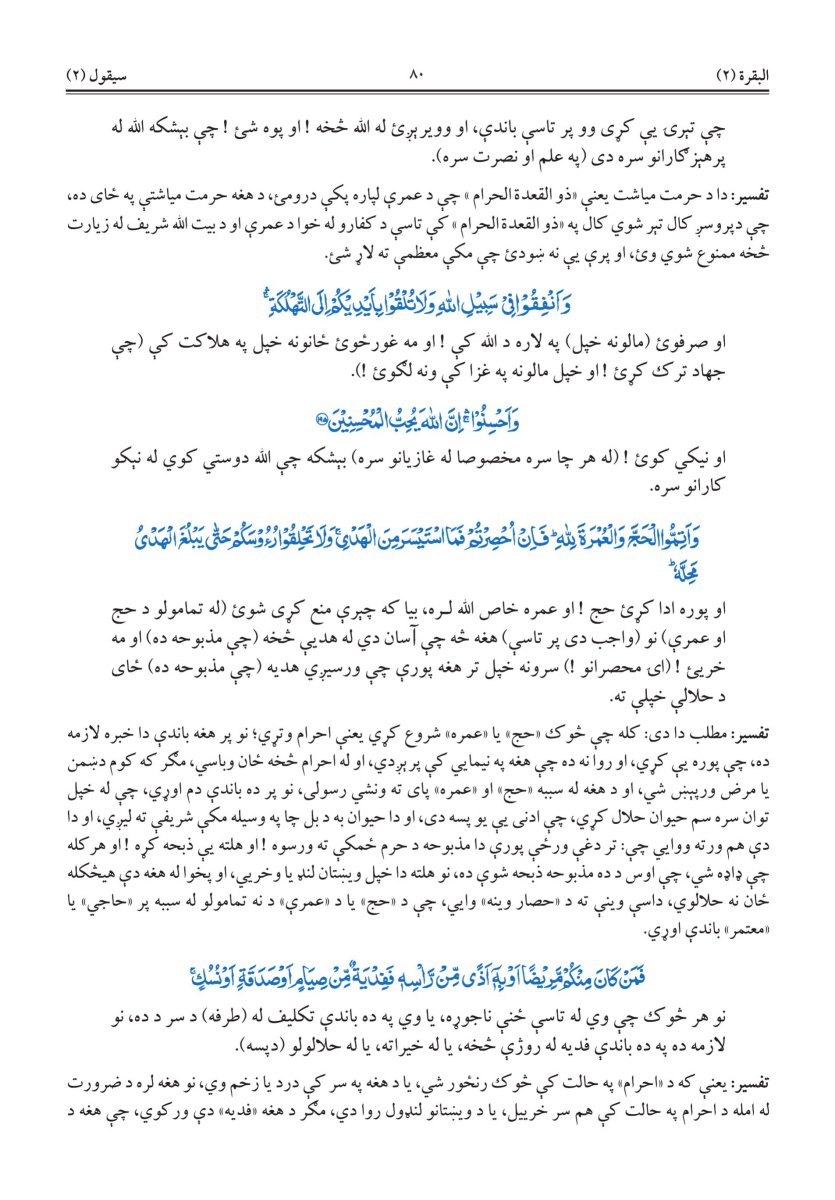 البقرة (۲) ۸۰ سيقول (۲)
چې تېرۍ يې کړی وو پر تاسې باندې، او وويرېږئ له الله څخه ! او پوه شئ ! چې بېشکه الله له
پرهېز ګارانو سره دی (په علم او نصرت سره).
تفسير: دا د حرمت مياشت يعنې «ذو القعدة الحرام » چې د عمرې لپاره پکې درومئ، د هغه حرمت مياشتې په ځای ده،
چې دپروسږ کال تېر شوي کال په «ذو القعدة الحرام » کې تاسې د کفارو له خوا د عمرې او د بيت الله شريف له زيارت
څخه ممنوع شوي وئ، او پرې يې نه ښودئ چې مکې معظمې ته لاړ شئ.
وَاَنْفِقُوْا فِيْ سَبِيْلِ اللهِ وَلَا تُلْقُوْا بِاَيْدِيْكُمْ اِلَى التَّهْلُكَةِ ۛۚ
او صرفوئ (مالونه خپل) په لاره د الله کې ! او مه غورځوئ ځانونه خپل په هلاکت کې (چې
جهاد ترک کړئ ! او خپل مالونه په غزا کې ونه لګوئ !).
وَاَحْسِنُوْا ۛۚ اِنَّ اللهَ يُحِبُّ الْمُحْسِنِيْنَ ﴿۱۹۵﴾
او نيکي کوئ ! (له هر چا سره مخصوصا له غازيانو سره) بېشکه چې الله دوستي کوي له نېکو
کارانو سره.
وَاَتِمُّوا الْحَجَّ وَالْعُمْرَةَ لِلّٰهِ ؕ فَاِنْ اُحْصِرْتُمْ فَمَا اسْتَيْسَرَ مِنَ الْهَدْيِ ۚ وَلَا تَحْلِقُوْا رُءُوْسَكُمْ حَتّٰى يَبْلُغَ الْهَدْيُ
مَحِلَّهٗ ؕ
او پوره ادا کړئ حج ! او عمره خاص الله لـره، بيا که چېرې منع کړی شوئ (له تمامولو د حج
او عمرې) نو (واجب دی پر تاسې) هغه څه چې آسان دي له هديې څخه (چې مذبوحه ده) او مه
خريئ ! (ای محصرانو !) سرونه خپل تر هغه پورې چې ورسيږي هديه (چې مذبوحه ده) ځای
د حلالې خپلې ته.
تفسير: مطلب دا دی: کله چې څوک «حج» يا «عمره» شروع کړي يعنې احرام وتړي؛ نو پر هغه باندې دا خبره لازمه
ده، چې پوره يې کړي، او روا نه ده چې هغه په نيمايي کې پرېږدي، او له احرام څخه ځان وباسي، مګر که کوم دښمن
يا مرض ورپېښ شي، او د هغه له سببه «حج» او «عمره» پای ته ونشي رسولی، نو پر ده باندې دم اوړي، چې له خپل
توان سره سم حيوان حلال کړي، چې ادنی يې يو پسه دی، او دا حيوان به د بل چا په وسيله مکې شريفې ته ليږي، او دا
دې هم ورته ووايي چې: تر دغې ورځې پورې دا مذبوحه د حرم ځمکې ته ورسوه ! او هلته يې ذبحه کړه ! او هر کله
چې ډاډه شي، چې اوس د ده مذبوحه ذبحه شوې ده، نو هلته دا خپل ويښتان لنډ يا وخريي، او پخوا له هغه دې هيڅکله
ځان نه حلالوي، داسې وينې ته د «حصار وينه» وايي، چې د «حج» يا د «عمرې» د نه تمامولو له سببه پر «حاجي» يا
«معتمر» باندې اوړي.
فَمَنْ كَانَ مِنْكُمْ مَّرِيْضًا اَوْ بِهٖۤ اَذًى مِّنْ رَّاْسِهٖ فَفِدْيَةٌ مِّنْ صِيَامٍ اَوْ صَدَقَةٍ اَوْ نُسُكٍ ۚ
نو هر څوک چې وي له تاسې ځنې ناجوړه، يا وي په ده باندې تکليف له (طرفه) د سر د ده، نو
لازمه ده په ده باندې فديه له روژې څخه، يا له خيراته، يا له حلالولو (دپسه).
تفسير: يعنې که د «احرام» په حالت کې څوک رنځور شي، يا د هغه په سر کې درد يا زخم وي، نو هغه لره د ضرورت
له امله د احرام په حالت کې هم سر خرييل، يا د ويښتانو لنډول روا دي، مګر د هغه «فديه» دې ورکوي، چې هغه د